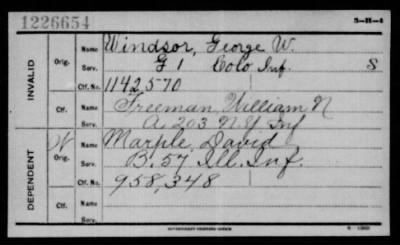 1226654
3-H-4
INVALID
Orig.
Name Windsor, George W.
Serv. G 1 Colo Inf. S
Ctf. No. 1142,570
Ctf. Name Freeman, William N
Serv. A. 203 N.Y. Inf
DEPENDENT
W
Orig.
Name Marple, David
Serv. B. 57 Ill. Inf.
Ctf. No. 958,348
Ctf. Name
Serv.